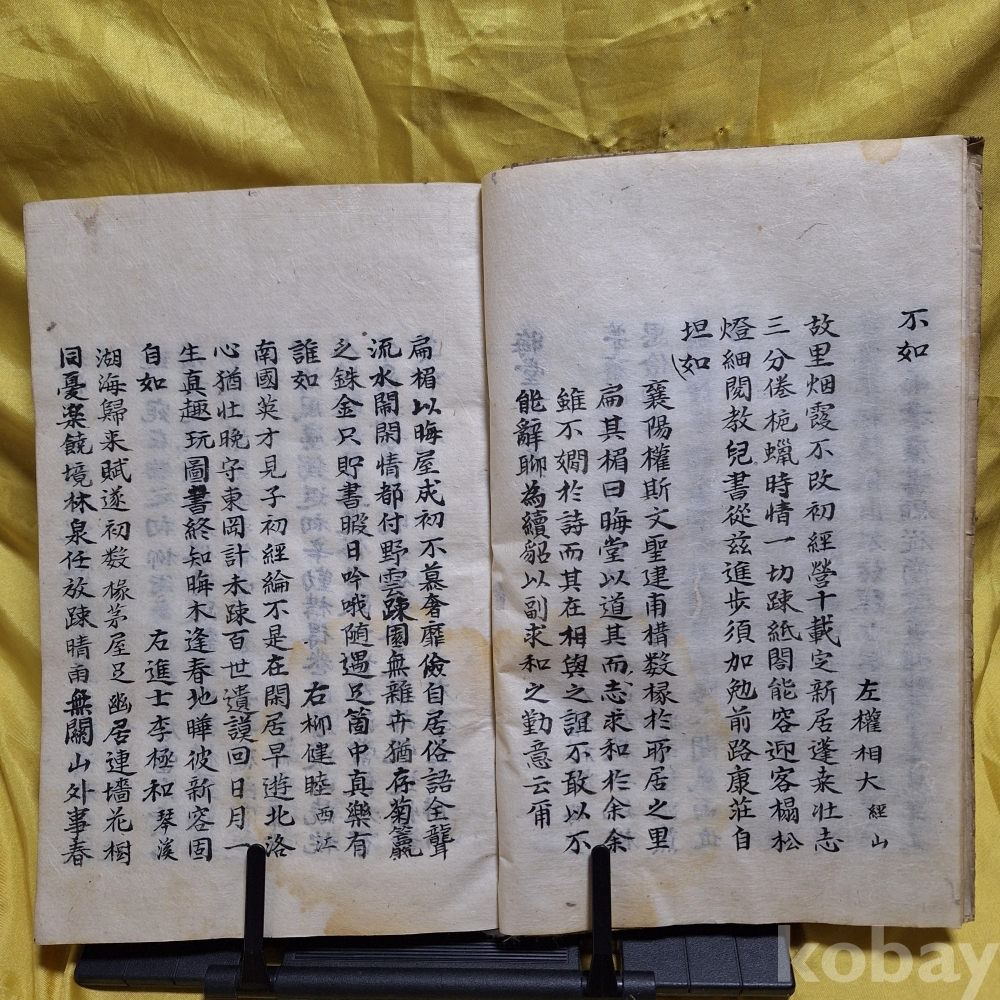 不如
左權相大 經山
故里烟霞不改初經營十載定新居蓬桒壮志
三分倦梔蠟時情一切踈紙閤能容迎客榻松
燈細閱教兒書從玆進步須加勉前路康莊自
坦如
襄陽權斯文聖建甫構数椽於所居之里
扁其楣曰晦堂以道其而志求和於余余
雖不嫺於詩而其在相與之誼不敢以不
能辭聊為續貂以副求和之勤意云甭
扁楣以晦屋成初不慕奢靡儉自居俗語全聾
流水閙閑情都付野雲踈園無雜卉猶存菊籯
乏銖金只貯書暇日吟哦随遇足箇中真樂有
誰如
右柳健睦 西江
南國英才見子初經綸不是在閑居早遊北洛
心猶壮晚守東岡計未踈百世遺謨回日月一
生真趣玩圖書終知晦木逢春地曄彼新容固
自如
右進士李極和 琴溪
湖海歸来賦遂初数椽茅屋足幽居連墻花樹
同憂楽饒境林泉任放踈晴雨無關山外事春
kobay